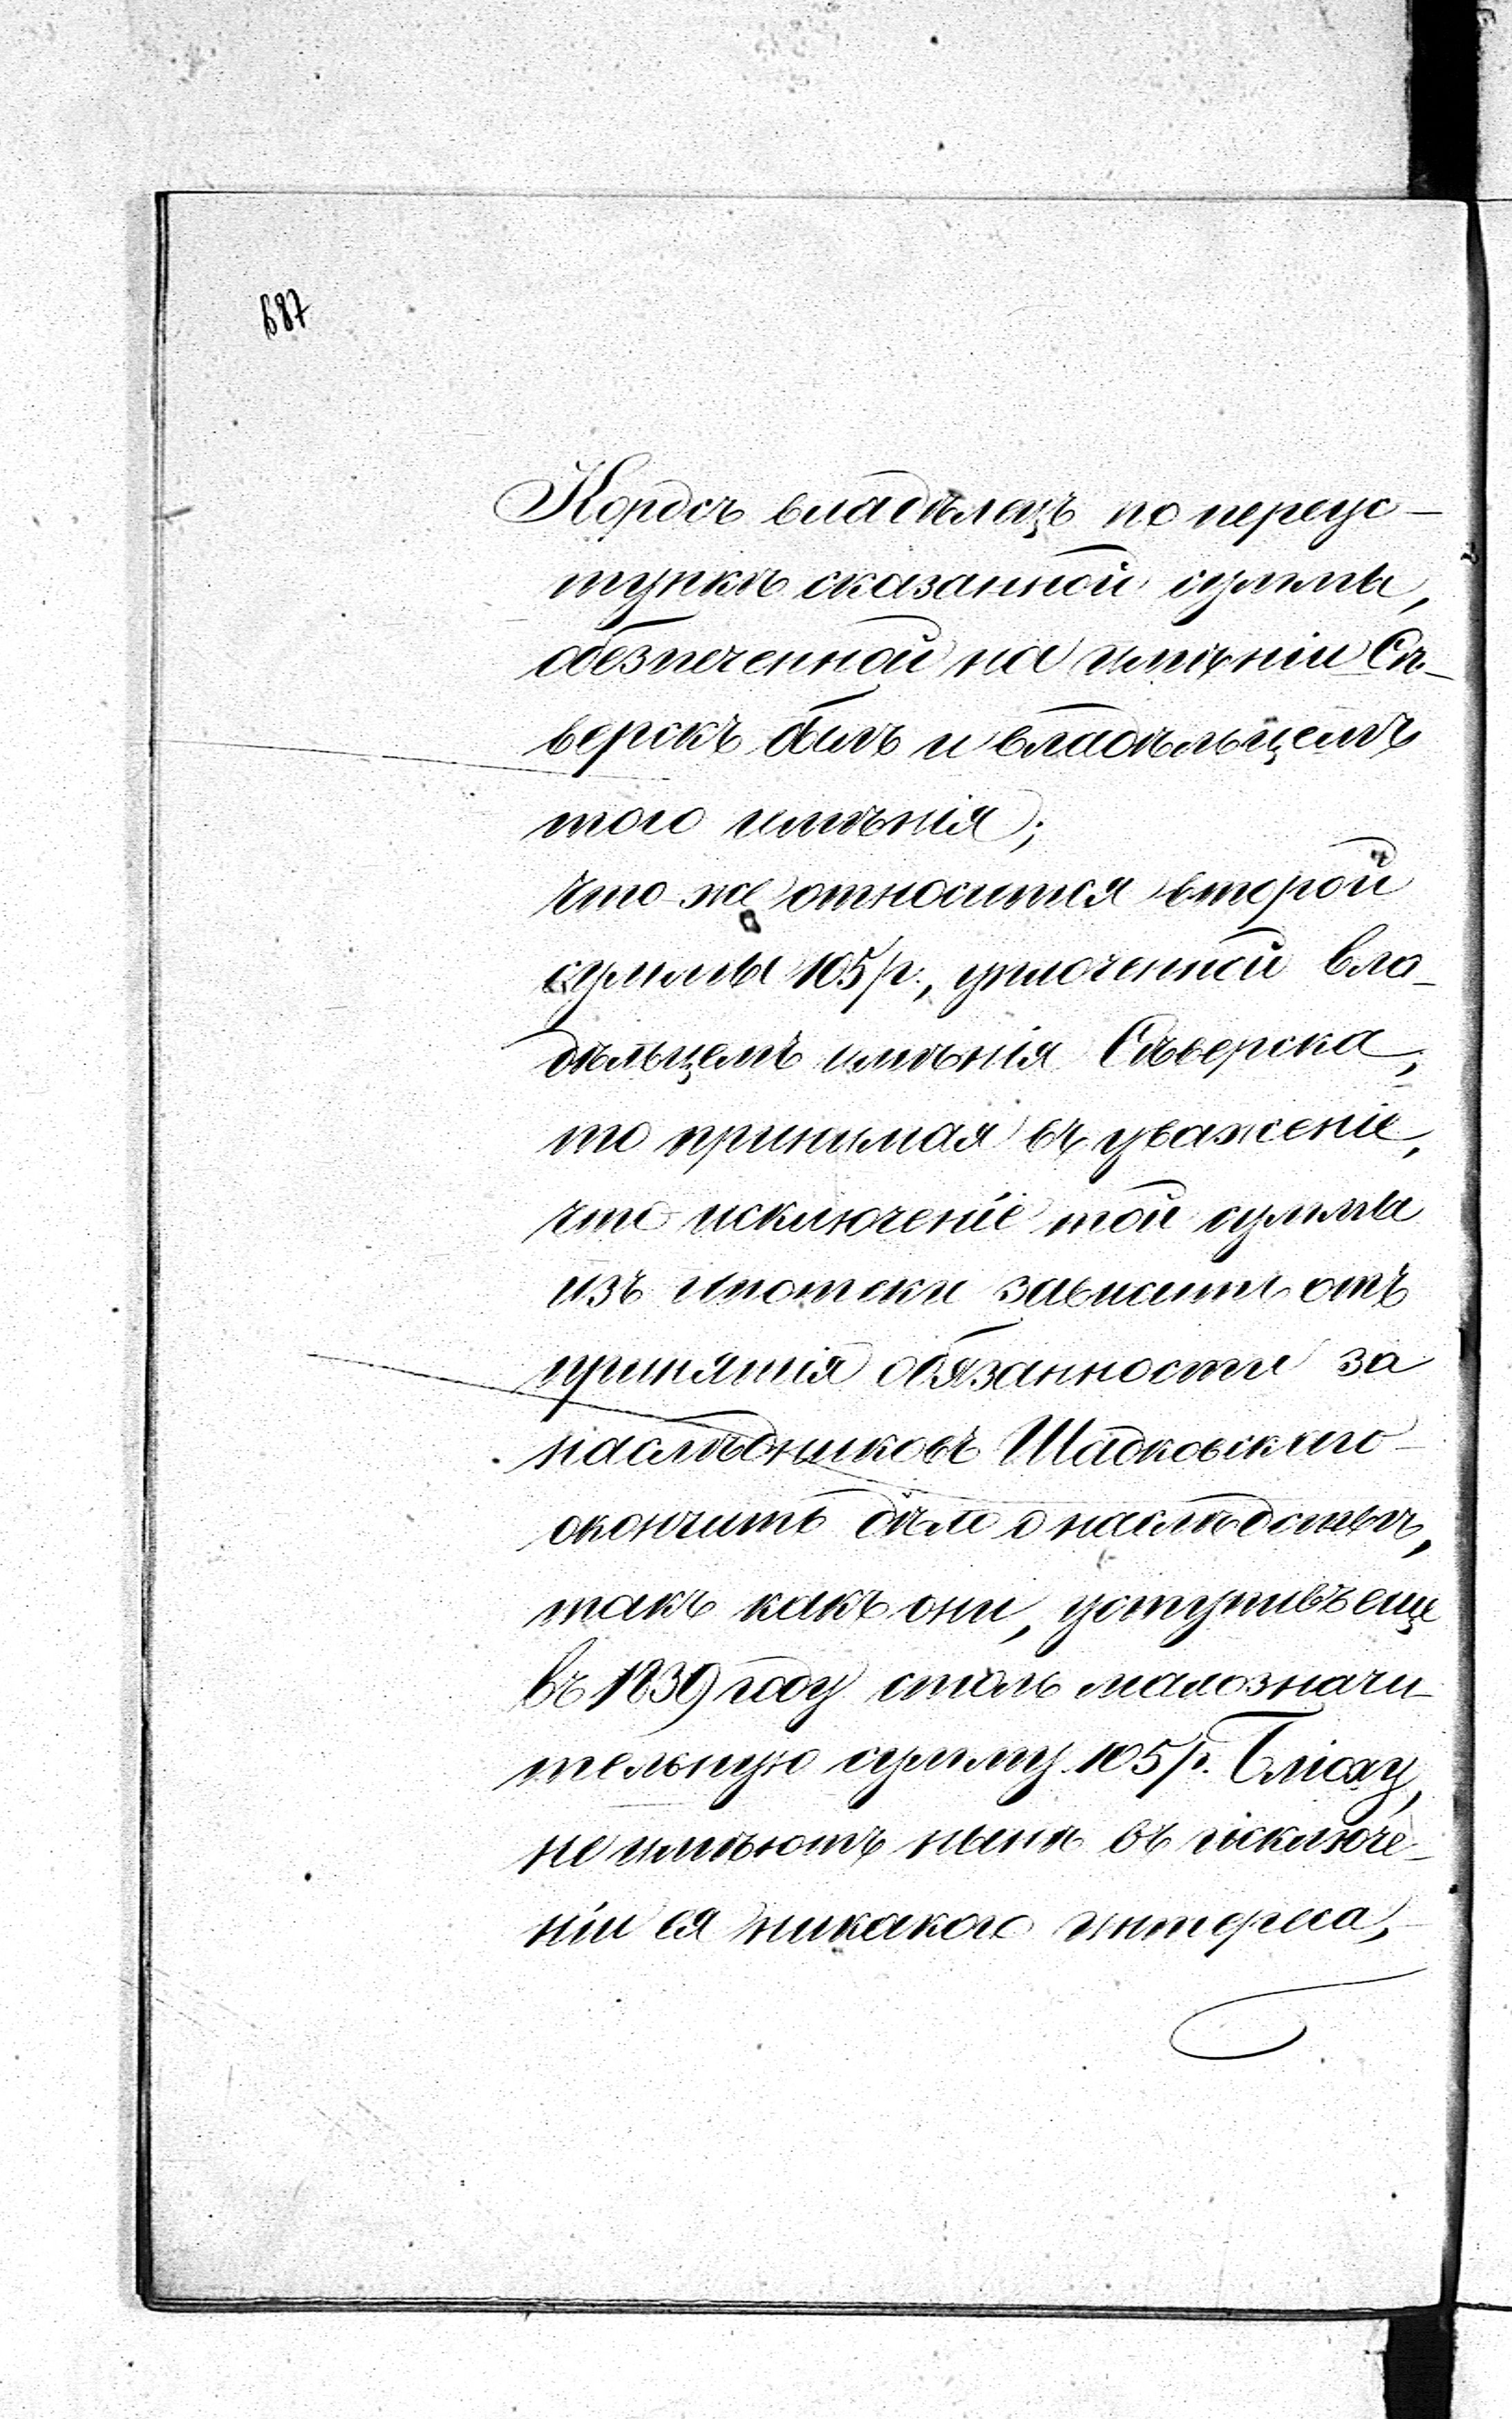 687
Кордсъ владѣлецъ по переус-
тупкѣ сказанной суммы,
обезпеченной на имѣніи Сѣ-
верскъ былъ и владѣльцемъ
того имѣнія;
что же относится второй
суммы 105 р., уплоченной вла-
дѣльцемъ имѣнія Сѣверска,
то принимая въ уваженіе,
что исключеніе той суммы
изъ ипотеки зависитъ отъ
принятія обязанности за
наслѣдниковъ Шадковскаго
окончить дѣло о наслѣдствѣ,
такъ какъ они, уступивъ еще
въ 1839 году столь малозначи-
тельную сумму 105 р. Блюху,
не имѣютъ нынѣ въ исключе-
ніи ея никакого интереса,